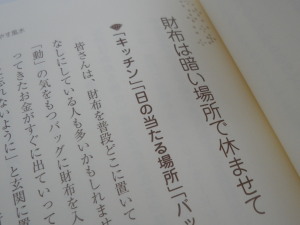 財布は暗い場所で休ませて
◆「キッチン」「日の当たる場所」「バッ
皆さんは、財布を普段どこに置いて
なしにしている人も多いかもしれませ
「動」の気をもつバッグに財布を入
ってきたお金がすぐに出ていって
ないように」と玄関に置